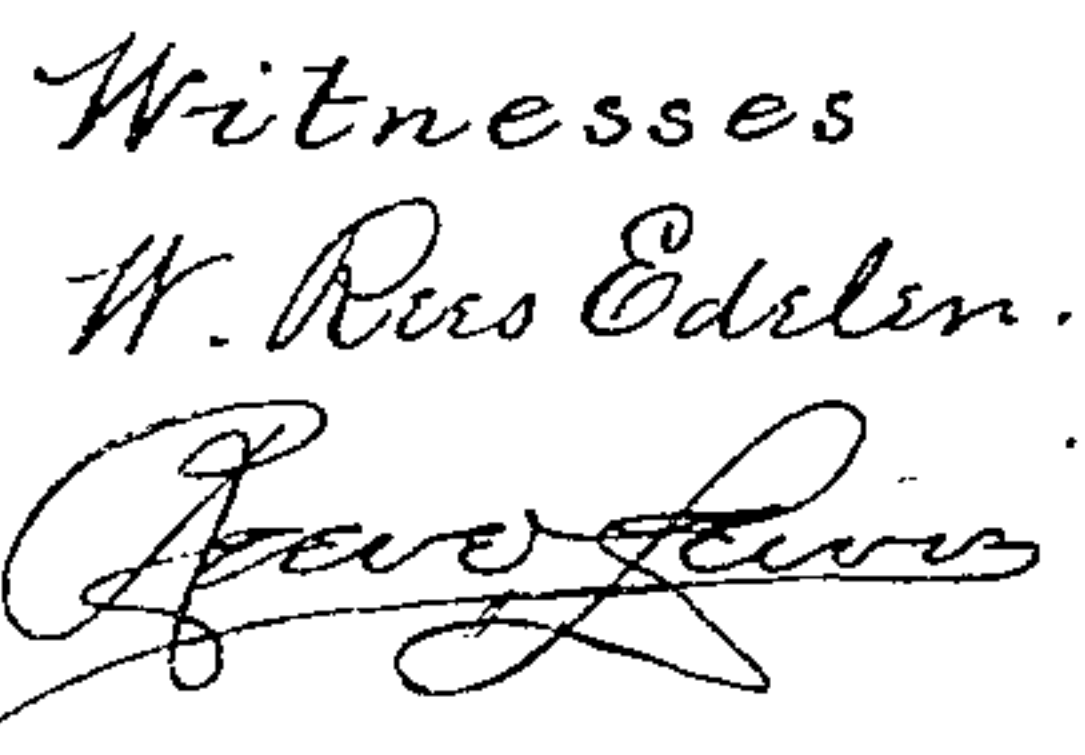 Witnesses
W. Rees Edelen.
Reeve Lewis